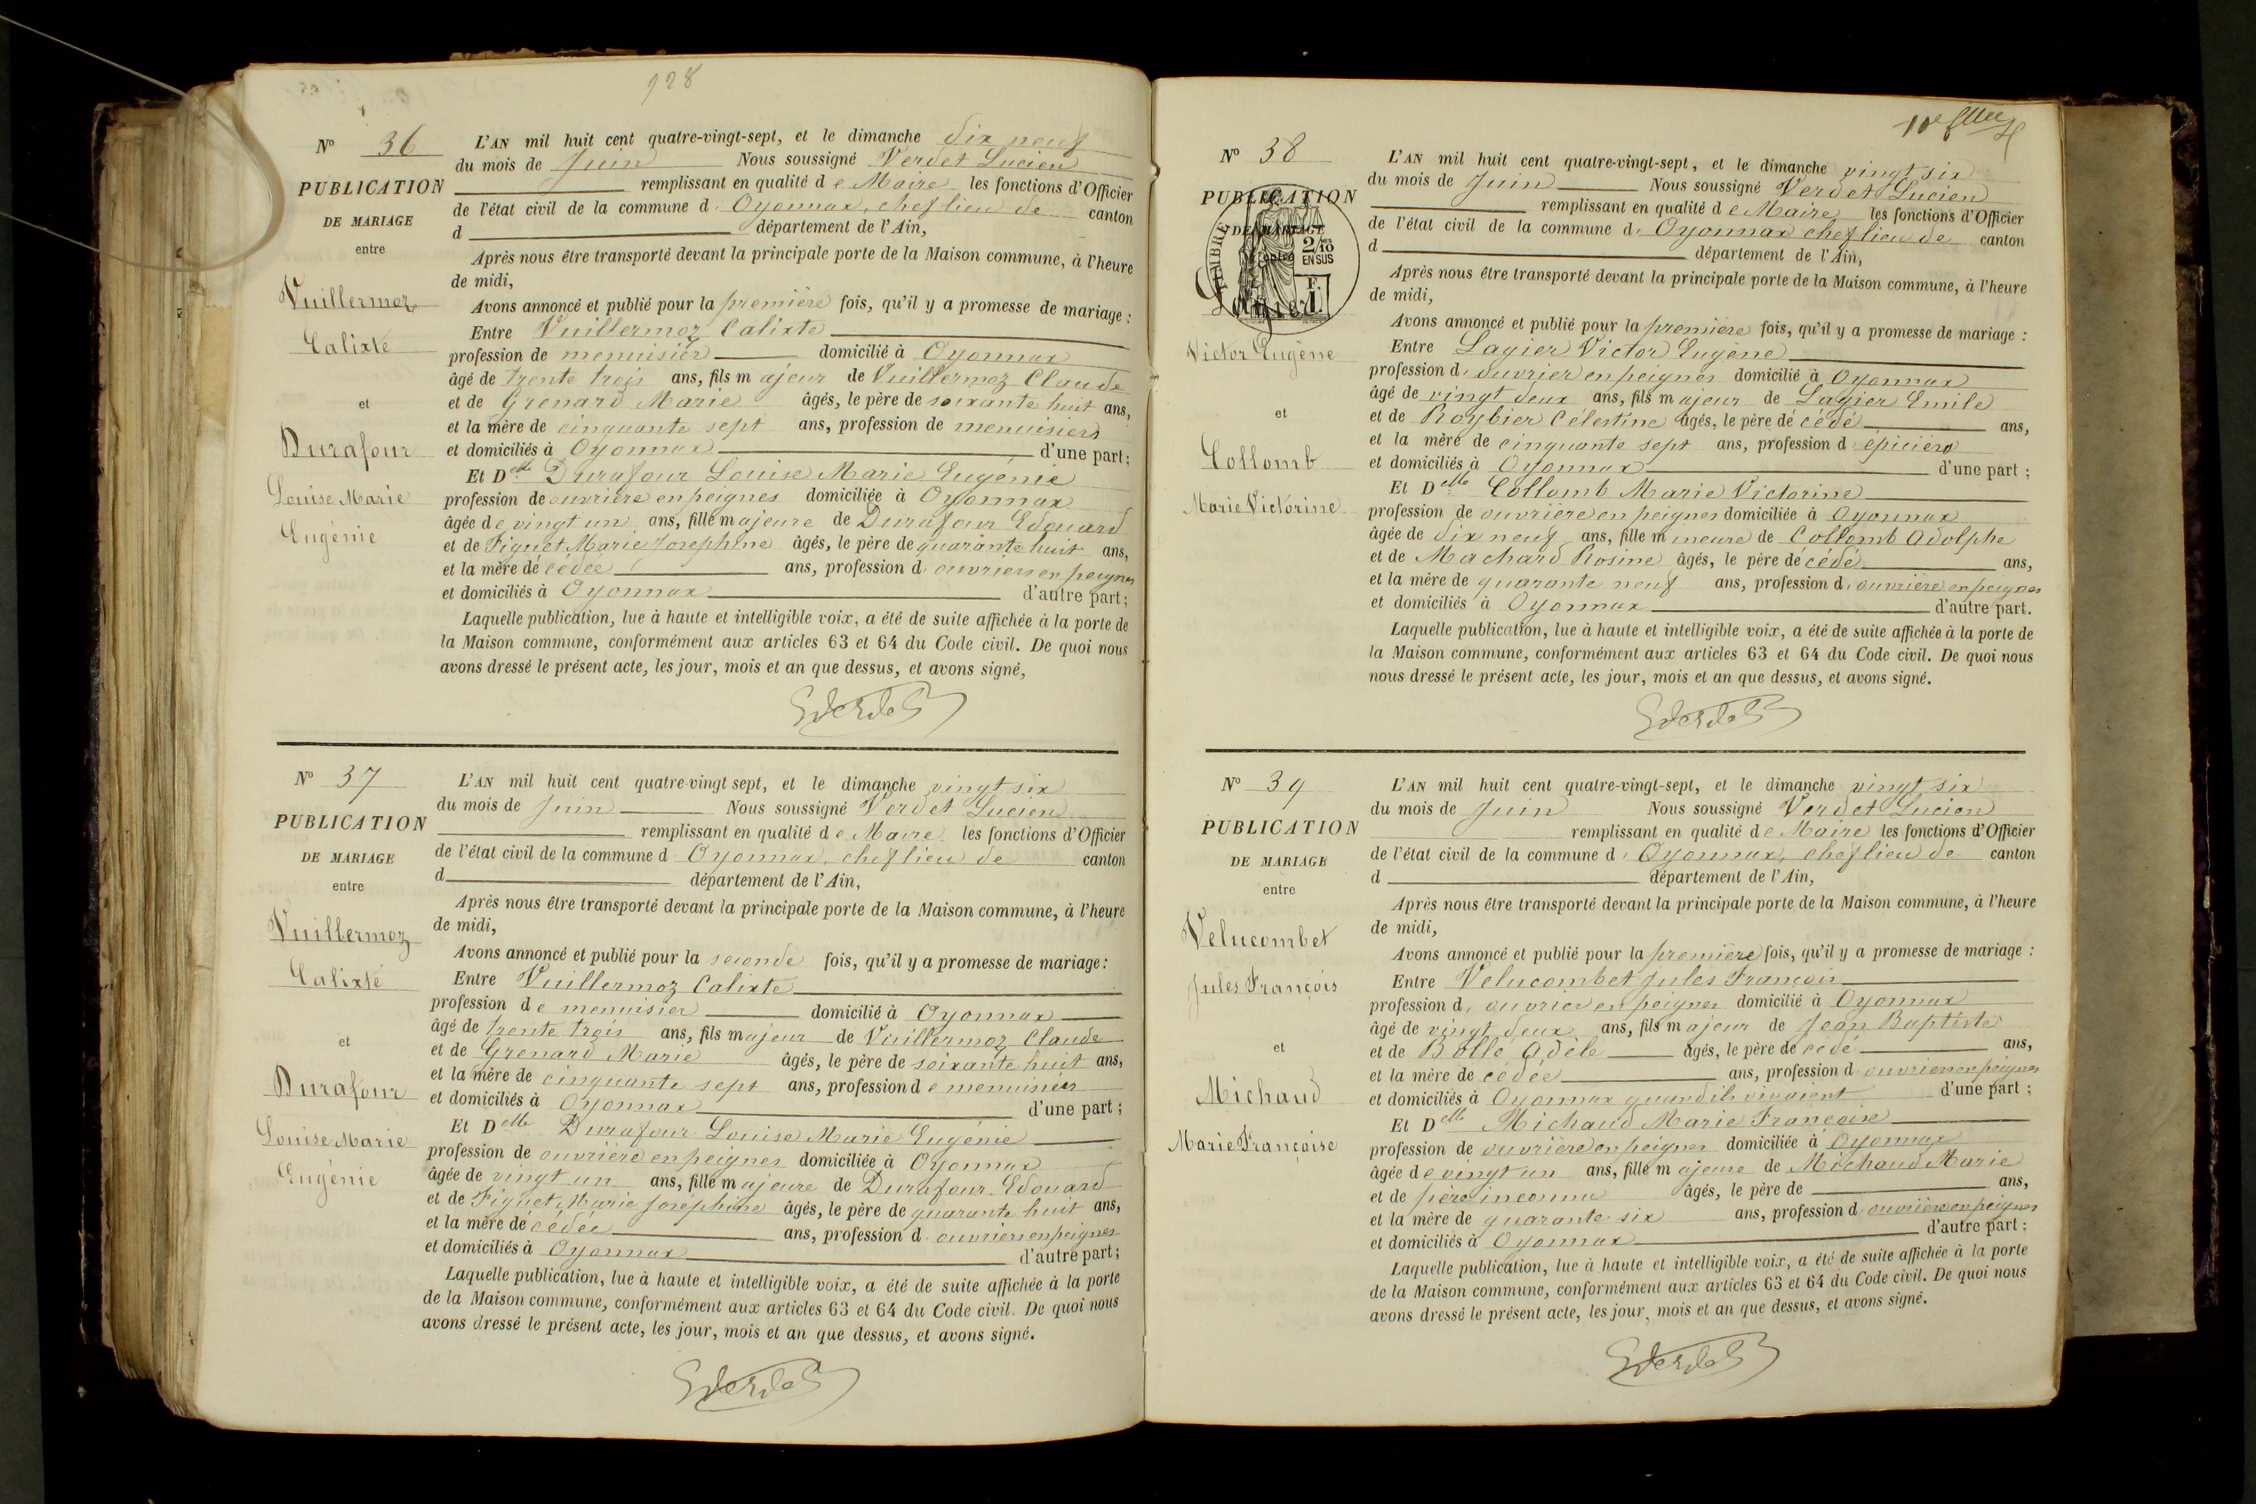 928
N° 36
PUBLICATION
DE MARIAGE
entre
Vuillermoz
Calixte
et
Durafour
Louise Marie
Eugénie
L'AN mil huit cent quatre-vingt-sept, et le dimanche dix neuf
du mois de Juin Nous soussigné Verdet Lucien
remplissant en qualité de Maire les fonctions d'Officier
de l'état civil de la commune d' Oyonnax, chef lieu de canton
d département de l'Ain,
Après nous être transporté devant la principale porte de la Maison commune, à l'heure
de midi,
Avons annoncé et publié pour la première fois, qu'il y a promesse de mariage :
Entre Vuillermoz Calixte
profession de menuisier domicilié à Oyonnax
âgé de trente trois ans, fils majeur de Vuillermoz Claude
et de Grenard Marie âgés, le père de soixante huit ans,
et la mère de cinquante sept ans, profession de menuisiers
et domiciliés à Oyonnax d'une part ;
Et Delle Durafour Louise Marie Eugénie
profession de ouvrière en peignes domiciliée à Oyonnax
âgée de vingt un ans, fille majeure de Durafour Edouard
et de Figuet Marie Josephine âgés, le père de quarante huit ans,
et la mère décédée ans, profession d' ouvriers en peignes
et domiciliés à Oyonnax d'autre part ;
Laquelle publication, lue à haute et intelligible voix, a été de suite affichée à la porte de
la Maison commune, conformément aux articles 63 et 64 du Code civil. De quoi nous
avons dressé le présent acte, les jour, mois et an que dessus, et avons signé,
N° 37
PUBLICATION
DE MARIAGE
entre
Vuillermoz
Calixte
et
Durafour
Louise Marie
Eugénie
L'AN mil huit cent quatre-vingt sept, et le dimanche vingt six
du mois de Juin Nous soussigné Verdet Lucien
remplissant en qualité de Maire les fonctions d'Officier
de l'état civil de la commune d Oyonnax, chef lieu de canton
d département de l'Ain,
Après nous être transporté devant la principale porte de la Maison commune, à l'heure
de midi,
Avons annoncé et publié pour la seconde fois, qu'il y a promesse de mariage :
Entre Vuillermoz Calixte
profession de menuisier domicilié à Oyonnax
âgé de trente trois ans, fils majeur de Vuillermoz Claude
et de Grenard Marie âgés, le père de soixante huit ans,
et la mère de cinquante sept ans, profession de menuisiers
et domiciliés à Oyonnax d'une part ;
Et Delle Durafour Louise Marie Eugénie
profession de ouvrière en peignes domiciliée à Oyonnax
âgée de vingt un ans, fille majeure de Durafour Edouard
et de Figuet Marie Joséphine âgés, le père de quarante huit ans,
et la mère décédée ans, profession d' ouvriers en peignes
et domiciliés à Oyonnax d'autre part ;
Laquelle publication, lue à haute et intelligible voix, a été de suite affichée à la porte
de la Maison commune, conformément aux articles 63 et 64 du Code civil. De quoi nous
avons dressé le présent acte, les jour, mois et an que dessus, et avons signé.
10e
N° 38
PUBLICATION
DE MARIAGE
entre
TIMBRE
2/10
EN SUS
F.
1.
Lagier
Victor Eugène
et
Collomb
Marie Victorine
L'AN mil huit cent quatre-vingt-sept, et le dimanche vingt six
du mois de Juin Nous soussigné Verdet Lucien
remplissant en qualité de Maire les fonctions d'Officier
de l'état civil de la commune d' Oyonnax chef lieu de canton
d département de l'Ain,
Après nous être transporté devant la principale porte de la Maison commune, à l'heure
de midi,
Avons annoncé et publié pour la première fois, qu'il y a promesse de mariage :
Entre Lagier Victor Eugène
profession d' ouvrier en peignes domicilié à Oyonnax
âgé de vingt deux ans, fils majeur de Lagier Emile
et de Roybier Célestine âgés, le père décédé ans,
et la mère de cinquante sept ans, profession d épicière
et domiciliés à Oyonnax d'une part ;
Et Delle Collomb Marie Victorine
profession de ouvrière en peignes domiciliée à Oyonnax
âgée de dix neuf ans, fille mineure de Collomb Adolphe
et de Machard Rosine âgés, le père décédé ans,
et la mère de quarante neuf ans, profession d' ouvrière en peignes
et domiciliés à Oyonnax d'autre part.
Laquelle publication, lue à haute et intelligible voix, a été de suite affichée à la porte de
la Maison commune, conformément aux articles 63 et 64 du Code civil. De quoi nous
nous dressé le présent acte, les jour, mois et an que dessus, et avons signé.
N° 39
PUBLICATION
DE MARIAGE
entre
Velucombet
Jules François
et
Michaud
Marie Françoise
L'AN mil huit cent quatre-vingt-sept, et le dimanche vingt six
du mois de Juin Nous soussigné Verdet Lucien
remplissant en qualité de Maire les fonctions d'Officier
de l'état civil de la commune d' Oyonnax, chef lieu de canton
d département de l'Ain,
Après nous être transporté devant la principale porte de la Maison commune, à l'heure
de midi,
Avons annoncé et publié pour la première fois, qu'il y a promesse de mariage :
Entre Velucombet Jules François
profession d' ouvrier en peignes domicilié à Oyonnax
âgé de vingt deux ans, fils majeur de Jean Baptiste
et de Bollé Adèle âgés, le père decédé ans,
et la mère de cédée ans, profession d ouvriers en peignes
et domiciliés à Oyonnax quand ils vivaient d'une part ;
Et Delle Michaud Marie Françoise
profession de ouvrière en peignes domiciliée à Oyonnax
âgée de vingt un ans, fille majeure de Michaud Marie
et de père inconnu âgés, le père de ans,
et la mère de quarante six ans, profession d ouvrière en peignes
et domiciliés à Oyonnax d'autre part :
Laquelle publication, lue à haute et intelligible voix, a été de suite affichée à la porte
de la Maison commune, conformément aux articles 63 et 64 du Code civil. De quoi nous
avons dressé le présent acte, les jour, mois et an que dessus, et avons signé.